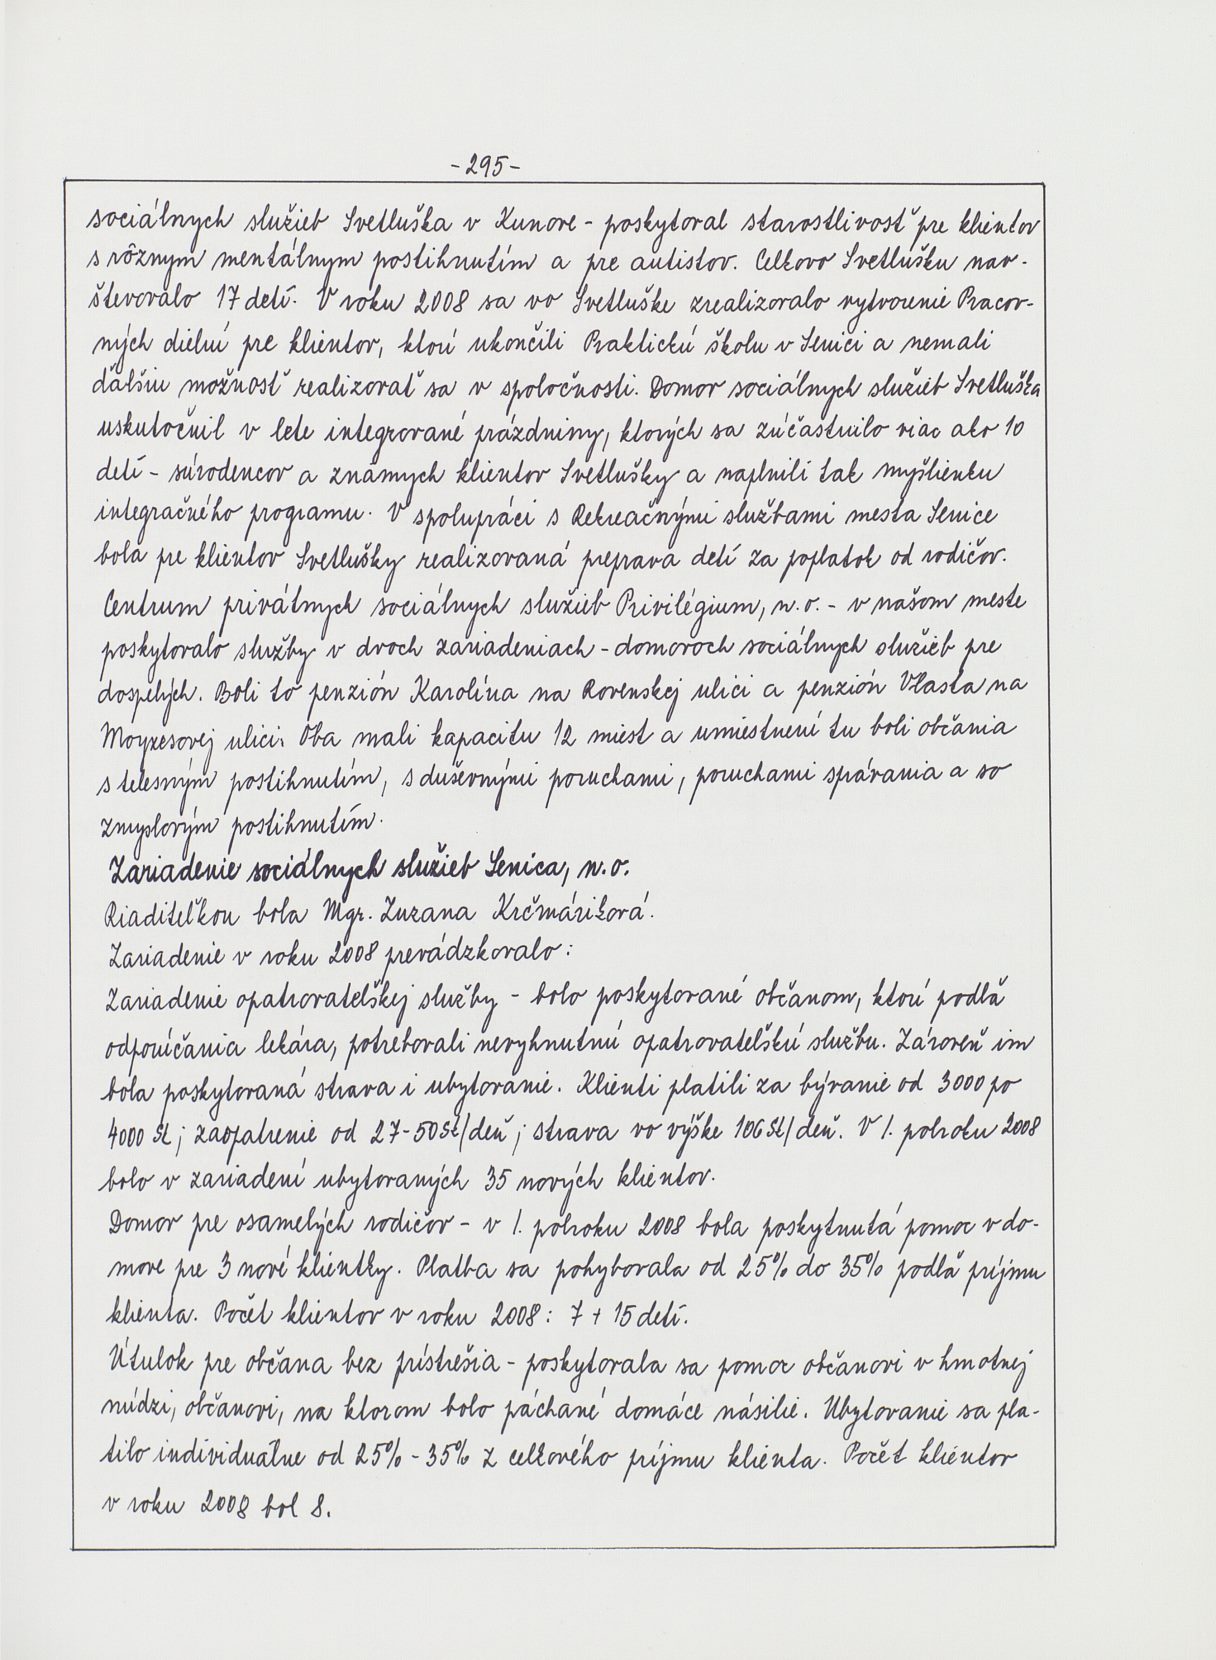 -295-
sociálnych služieb Svetluška v Kunove - poskytoval starostlivosť pre klientov
s rôznym mentálnym postihnutím a pre autistov. Celkovo Svetlušku nav-
števovalo 17 detí. V roku 2008 sa vo Svetluške zrealizovalo vytvorenie Pracov-
ných dielní pre klientov, ktorí ukončili Praktickú školu v Senici a nemali
ďalšiu možnosť realizovať sa v spoločnosti. Domov sociálnych služieb Svetluška
uskutočnil v lete integrované prázdniny, ktorých sa zúčastnilo viac ako 10
detí - súrodencov a známych klientov Svetlušky a naplnili tak myšlienku
integračného programu. V spolupráci s Rekreačnými službami mesta Senice
bola pre klientov Svetlušky realizovaná preprava detí za poplatok od rodičov.
Centrum privátnych sociálnych služieb Privilégium, n.o. - v našom meste
poskytovalo služby v dvoch zariadeniach - domovoch sociálnych služieb pre
dospelých. Boli to penzión Karolína na Rovenskej ulici a penzión Vlasta na
Moyzesovej ulici. Oba mali kapacitu 12 miest a umiestnení tu boli občania
s telesným postihnutím, s duševnými poruchami, poruchami správania a so
zmyslovým postihnutím.
Zariadenie sociálnych služieb Senica, n.o.
Riaditeľkou bola Mgr. Zuzana Krčmáriková.
Zariadenie v roku 2008 prevádzkovalo:
Zariadenie opatrovateľskej služby - bolo poskytované občanom, ktorí podľa
odporúčania lekára, potrebovali nevyhnutnú opatrovateľskú službu. Zároveň im
bola poskytovaná strava i ubytovanie. Klienti platili za bývanie od 3000 po
4000 Sk; zaopatrenie od 27-50 Sk/deň; strava vo výške 106 Sk/deň. V 1. polroku 2008
bolo v zariadení ubytovaných 35 nových klientov.
Domov pre osamelých rodičov - v 1. polroku 2008 bola poskytnutá pomoc v do-
move pre 3 nové klientky. Platba sa pohybovala od 25% do 35% podľa príjmu
klienta. Počet klientov v roku 2008: 7 + 15 detí.
Útulok pre občana bez prístrešia - poskytovala sa pomoc občanovi v hmotnej
núdzi, občanovi, na ktorom bolo páchané domáce násilie. Ubytovanie sa pla-
tilo individuálne od 25% - 35% z celkového príjmu klienta. Počet klientov
v roku 2008 bol 8.